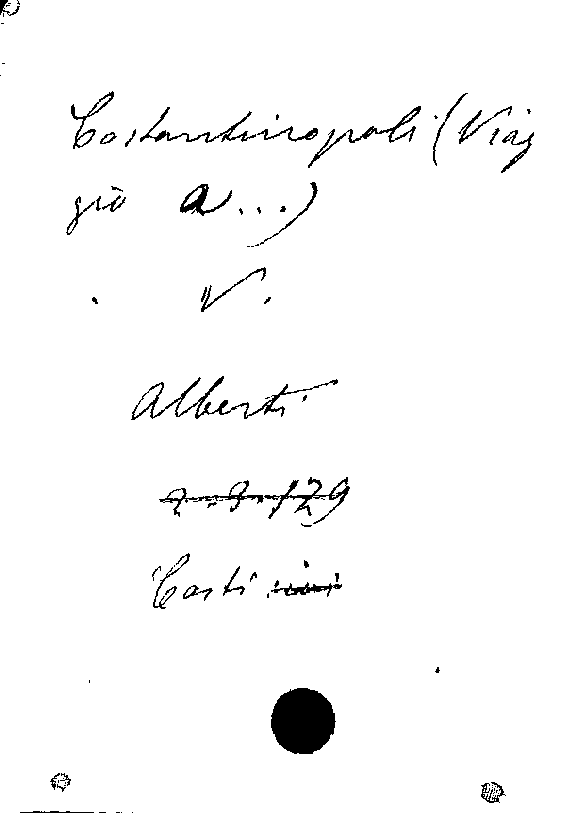 Costantinopoli (Viag
gio a ...)
V.
Alberti
2-3-129
Casti ivi